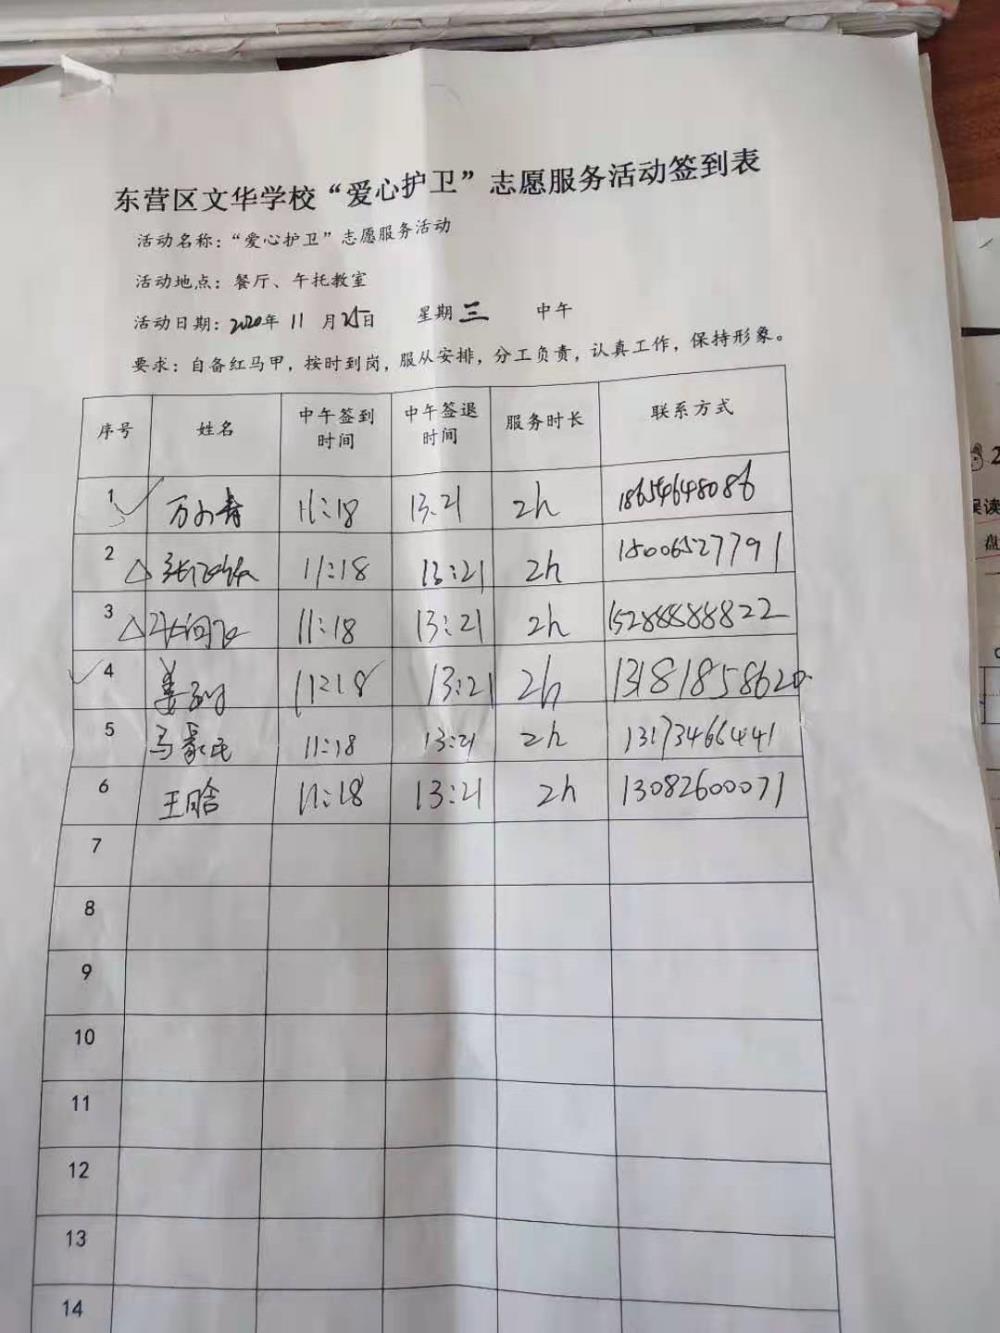 东营区文华学校“爱心护卫”志愿服务活动签到表
活动名称：“爱心护卫”志愿服务活动
活动地点：餐厅、午托教室
活动日期：2020年 11 月25日 星期三 中午
要求：自备红马甲，按时到岗，服从安排，分工负责，认真工作，保持形象。
序号 姓名 中午签到时间 中午签退时间 服务时长 联系方式
1 11:18 13:21 2h 18654648086
2 11:18 13:21 2h 15006527791
3 11:18 13:21 2h 15288888822
4 姜 11:18 13:21 2h 13181858620
5 马 11:18 13:21 2h 13173466441
6 王晗 11:18 13:21 2h 13082600071
7
8
9
10
11
12
13
14